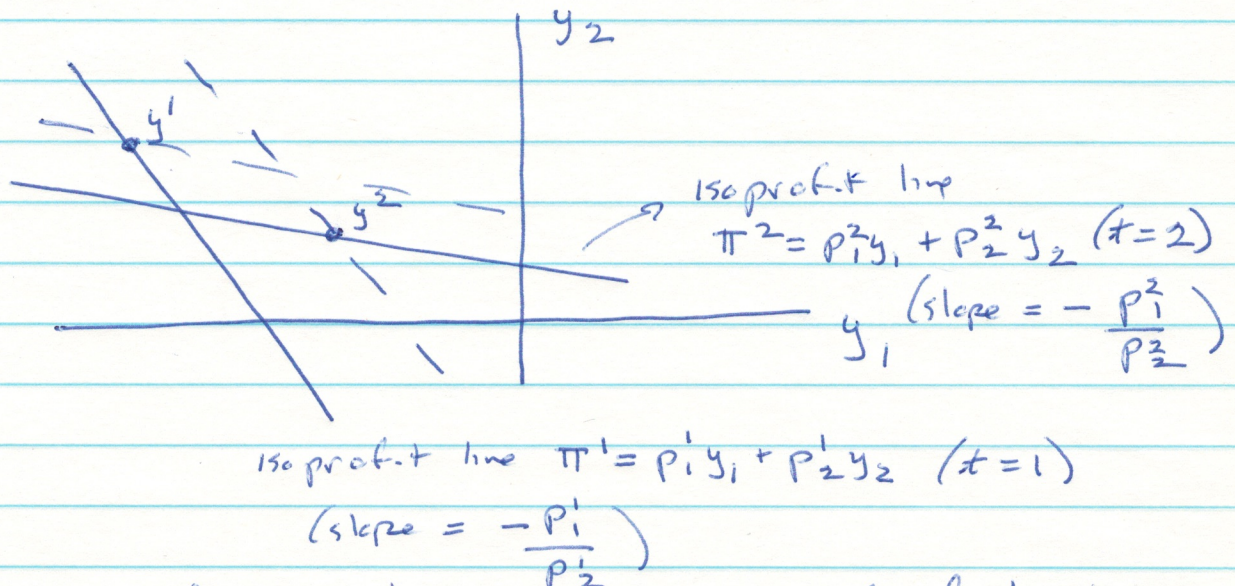 y₂
y¹
y²
isoprofit line
π² = p₁²y₁ + p₂²y₂ (t=2)
(slope = - p₁²/p₂²)
y₁
isoprofit line π¹ = p₁¹y₁ + p₂¹y₂ (t=1)
(slope = - p₁¹/p₂¹)